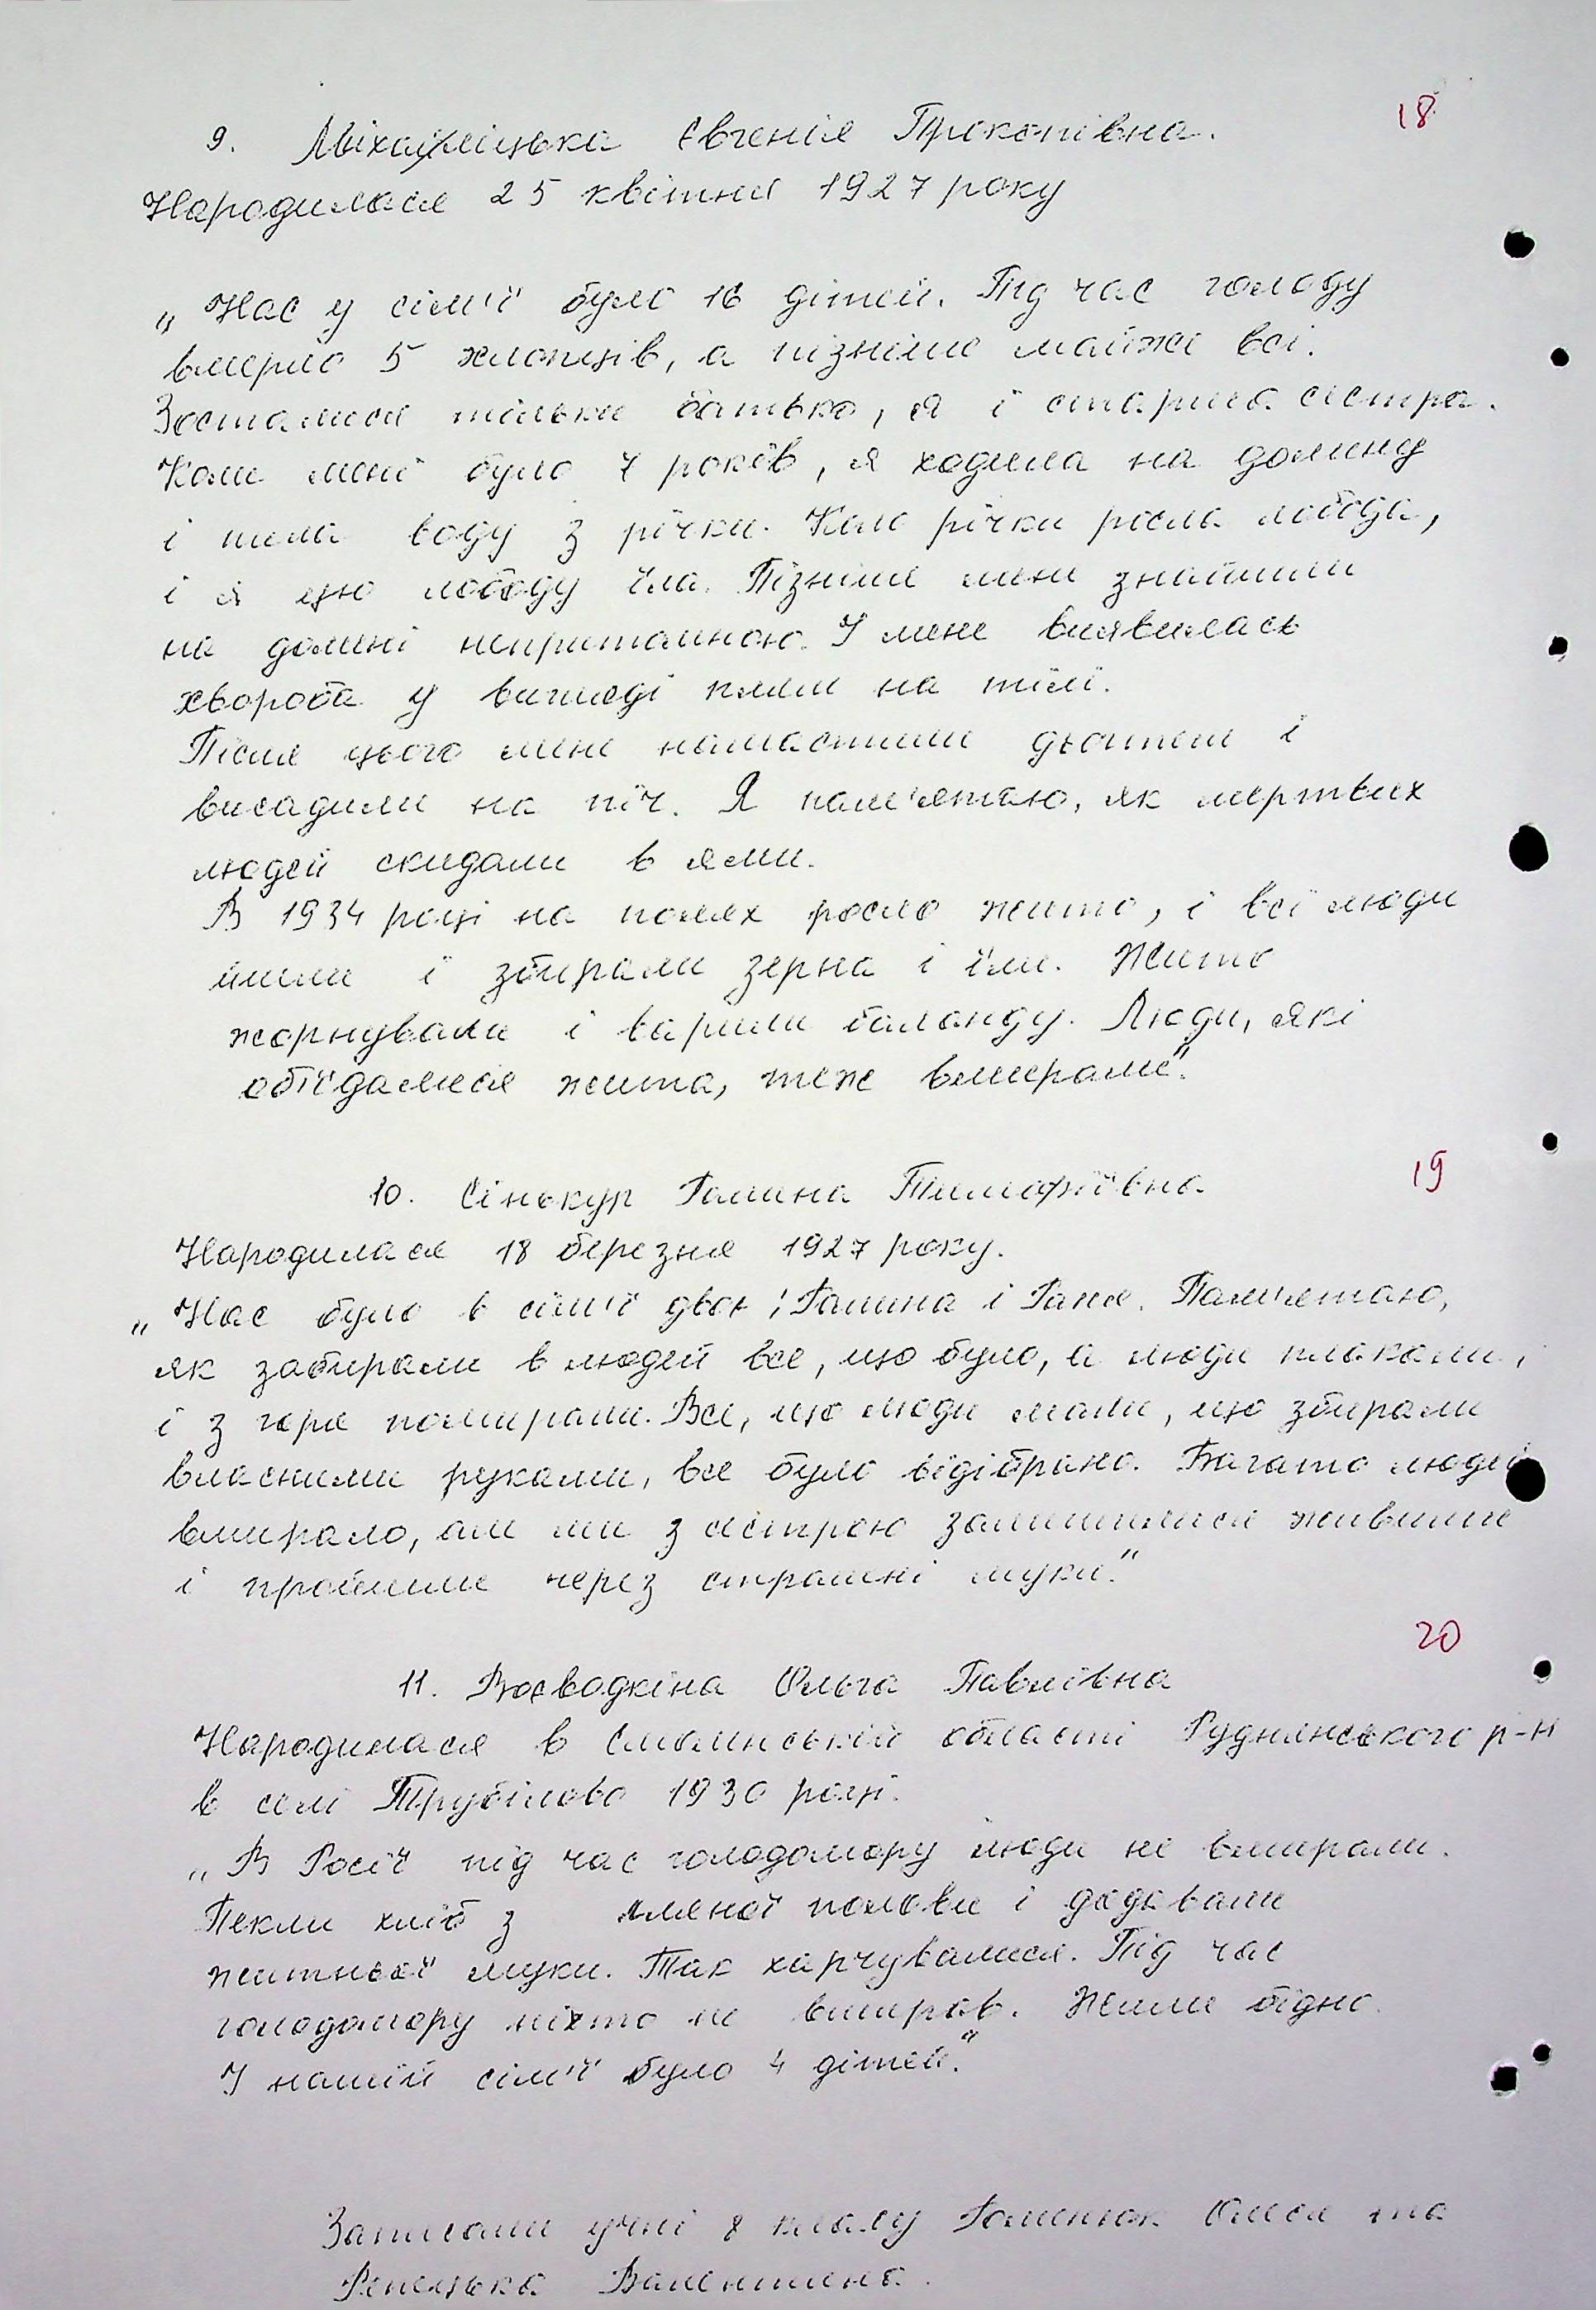 18
9. Міхаліцька Євгенія Прокопівна.
Народилася 25 квітня 1927 року
„Нас у сім'ї було 16 дітей. Під час голоду
вмерло 5 хлопців, а пізніше майже всі.
Зосталися тільки батько, я і старша сестра.
Коли мені було 7 років, я ходила на долину
і пила воду з річки. Коло річки росла лобода,
і я цю лободу їла. Пізніше мене знайшли
на долині непритомною. У мене виявилась
хвороба у вигляді плям на тілі.
Після цього мене намастили дьогтем і
висадили на піч. Я пам'ятаю, як мертвих
людей скидали в ями.
В 1934 році на полях росло жито, і всі люди
йшли і збирали зерна і їли. Жито
жорнували і варили баланду. Люди, які
об'їдалися жита, теж вмирали".
19
10. Сінькур Галина Тимофіївна
Народилася 18 березня 1927 року.
„Нас було в сім'ї двоє: Галина і Ганя. Пам'ятаю,
як забирали в людей все, що було, а люди плакали,
і з горя помирали. Все, що люди мали, що збирали
власними руками, все було відібрано. Багато людей
вмирало, але ми з сестрою залишилися живими
і пройшли через страшні муки."
20
11. Воєводкіна Ольга Павлівна
Народилася в Смоленській області Руднянського р-н
в селі Трубілово 1930 році.
„В Росії під час голодомору люди не вмирали.
Пекли хліб з лляної полови і додавали
житньої муки. Так харчувалися. Під час
голодомору ніхто не вмирав. Жили бідно.
У нашій сім'ї було 4 дітей."
Записали учні 8 класу Голенюк Олеся та
Репецька Валентина.